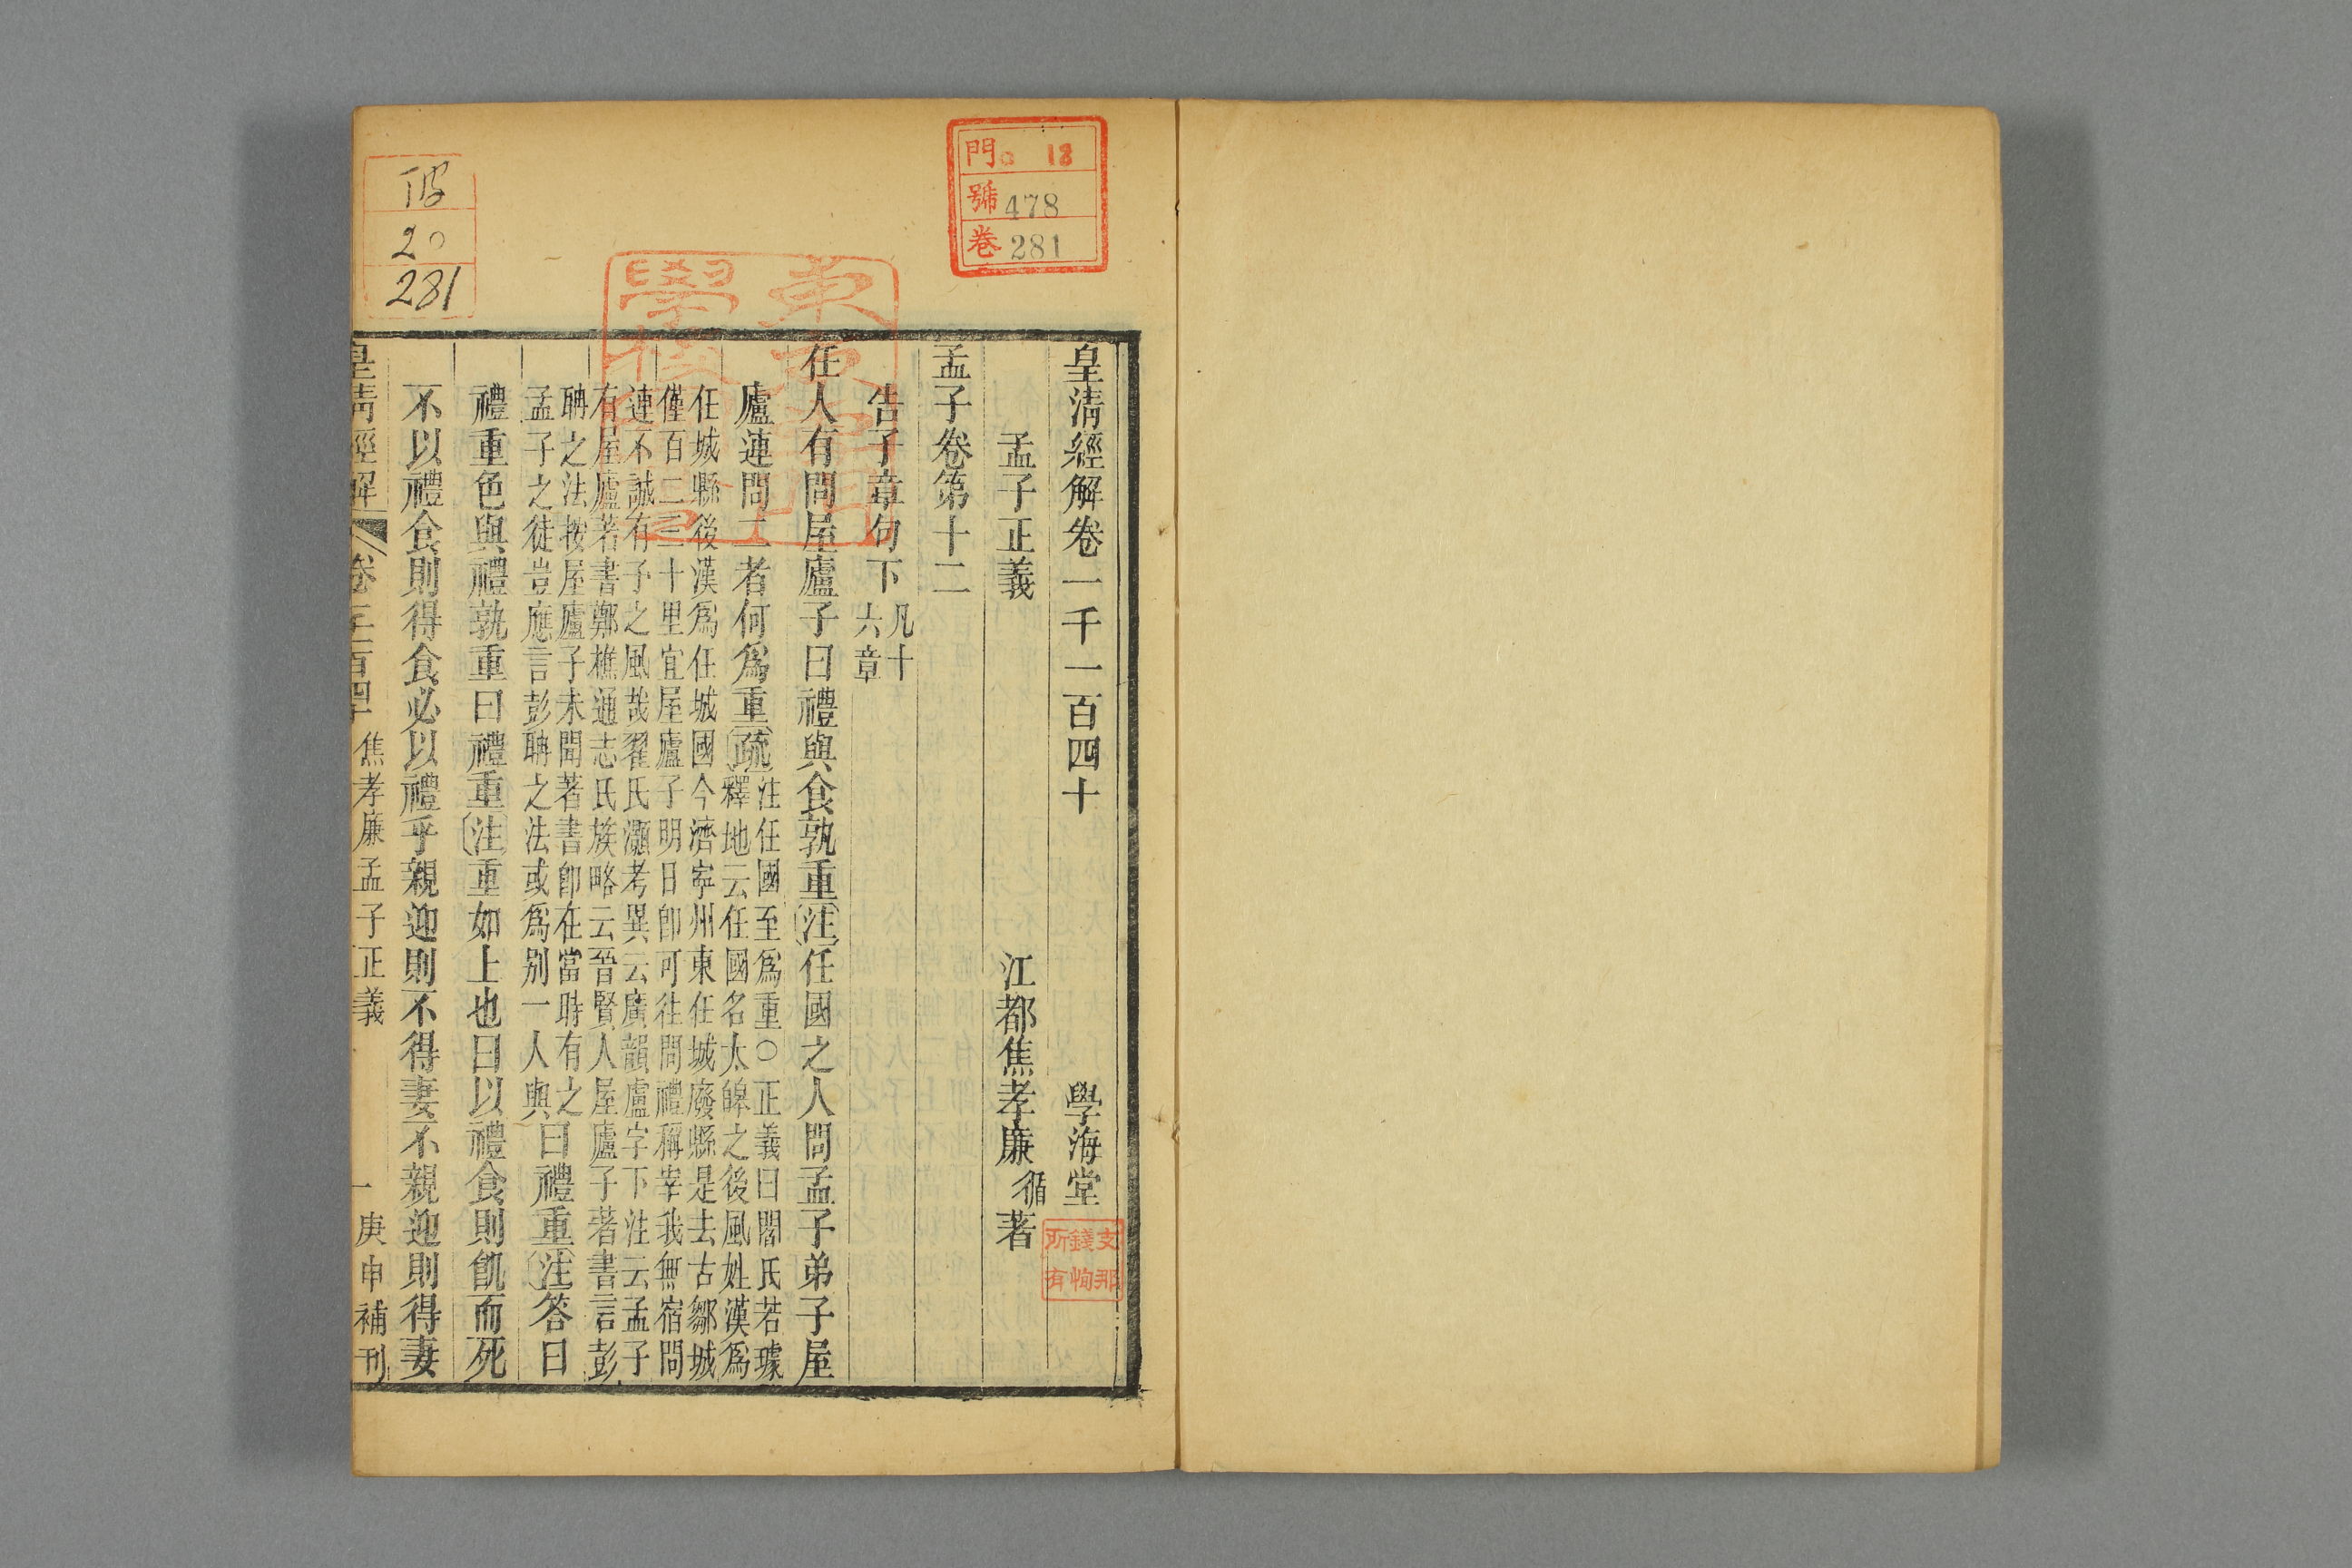 皇清經解卷一千一百四十
學海堂
孟子正義
江都焦孝廉循著
孟子卷第十二
告子章句下
凡十
六章
任人有問屋廬子曰禮與食孰重注任國之人問孟子弟子屋
廬連問二者何爲重疏
注任國至爲重○正義曰閻氏若璩
釋地云任國名太皞之後風姓漢爲
任城縣後漢爲任城國今濟寧州東任城廢縣是去古鄒城
僅百二三十里宜屋廬子明日卽可往問禮稱宰我無宿問
連不誠有予之風哉翟氏灝考異云廣韻廬字下注云孟子
有屋廬著書鄭樵通志氏族略云晉賢人屋廬子著書言彭
聃之法按屋廬子未聞著書卽在當時有之
孟子之徒豈應言彭聃之法或爲別一人與
曰禮重注答曰
禮重色與禮孰重曰禮重注重如上也曰以禮食則飢而死
不以禮食則得食必以禮乎親迎則不得妻不親迎則得妻
皇清經解
焦孝廉孟子正義
一
庚申補刊
門 18
號 478
卷 281
20
281
支那
錢恂
所有